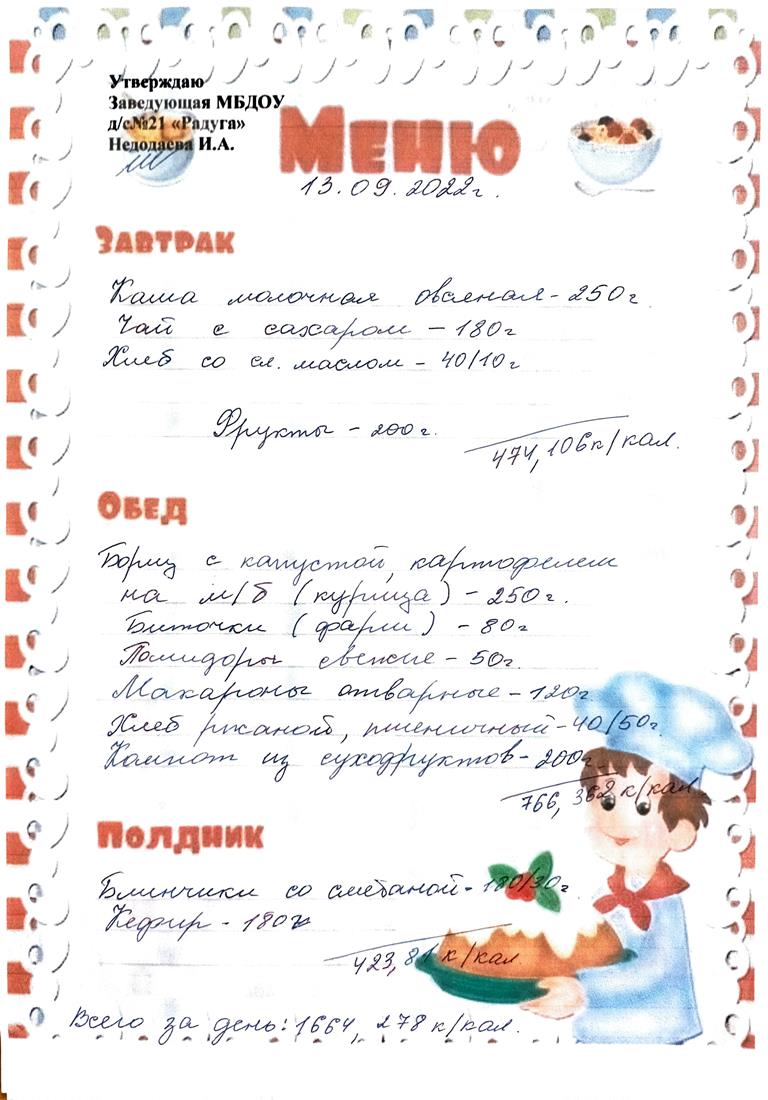 Утверждаю
Заведующая МБДОУ
д/с№21 «Радуга»
Недодаева И.А.
Меню
13.09.2022г.
Завтрак
Каша молочная овсяная - 250г
Чай с сахаром - 180г
Хлеб со сл. маслом - 40/10г
Фрукты - 200г.
474,106к/кал.
Обед
Борщ с капустой, картофелем
на м/б (курица) - 250г.
Биточки (фарш) - 80г
Помидоры свежие - 50г.
Макароны отварные - 120г.
Хлеб ржаной, пшеничный - 40/50г.
Компот из сухофруктов - 200г.
766,362 к/кал.
Полдник
Блинчики со сметаной - 180/30г.
Кефир - 180г
423,81 к/кал.
Всего за день: 1664,278 к/кал.